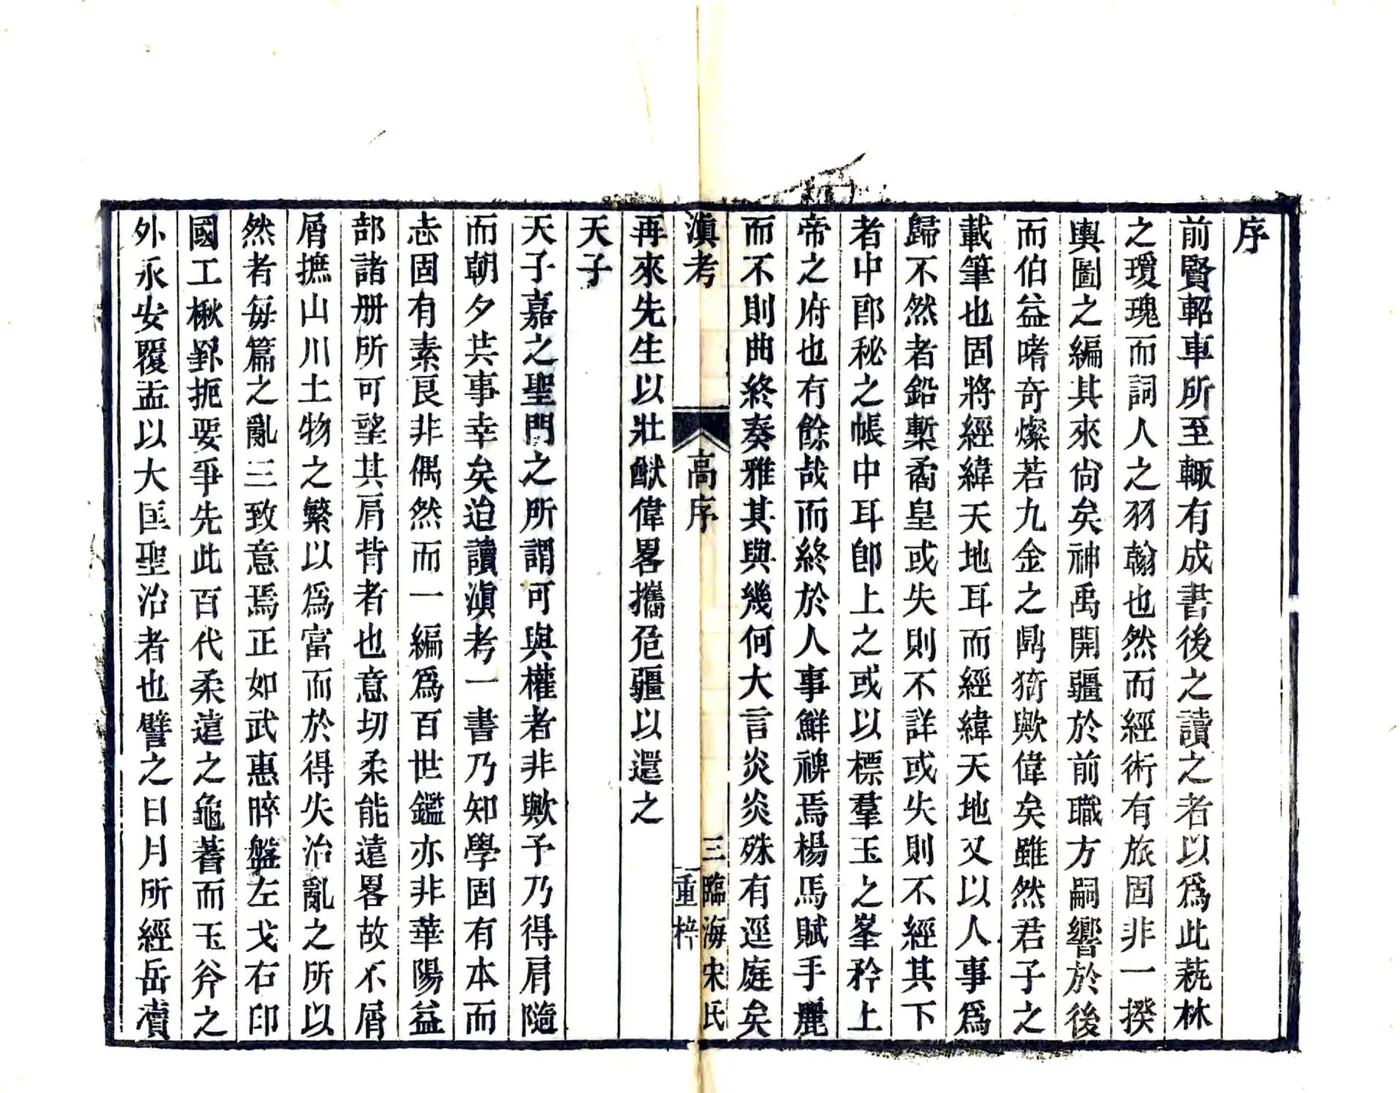 序
前賢軺車所至輙有成書後之讀之者以爲此蓺林
之瓊瑰而詞人之羽翰也然而經術有旅固非一揆
輿圖之編其來尙矣神禹開疆於前職方嗣響於後
而伯益嗜奇燦若九金之鼎猗歟偉矣雖然君子之
載筆也固將經緯天地耳而經緯天地又以人事爲
歸不然者鉛槧矞皇或失則不詳或失則不經其下
者中郎秘之帳中耳卽上之或以標羣玉之峯矜上
帝之府也有餘哉而終於人事鮮裨焉楊馬賦手麗
而不則曲終奏雅其與幾何大言炎炎殊有逕庭矣
滇考
高序
三
臨海宋氏
重梓
再來先生以壯猷偉畧攜危疆以還之
天子
天子嘉之聖門之所謂可與權者非歟予乃得肩隨
而朝夕共事幸矣迨讀滇考一書乃知學固有本而
志固有素良非偶然而一編爲百世鑑亦非華陽益
部諸册所可望其肩背者也意切柔能遠畧故不屑
屑摭山川土物之繁以爲富而於得失治亂之所以
然者每篇之亂三致意焉正如武惠晬盤左戈右印
國工楸𥿈扼要爭先此百代柔遠之龜蓍而玉斧之
外永安覆盂以大匡聖治者也譬之日月所經岳瀆